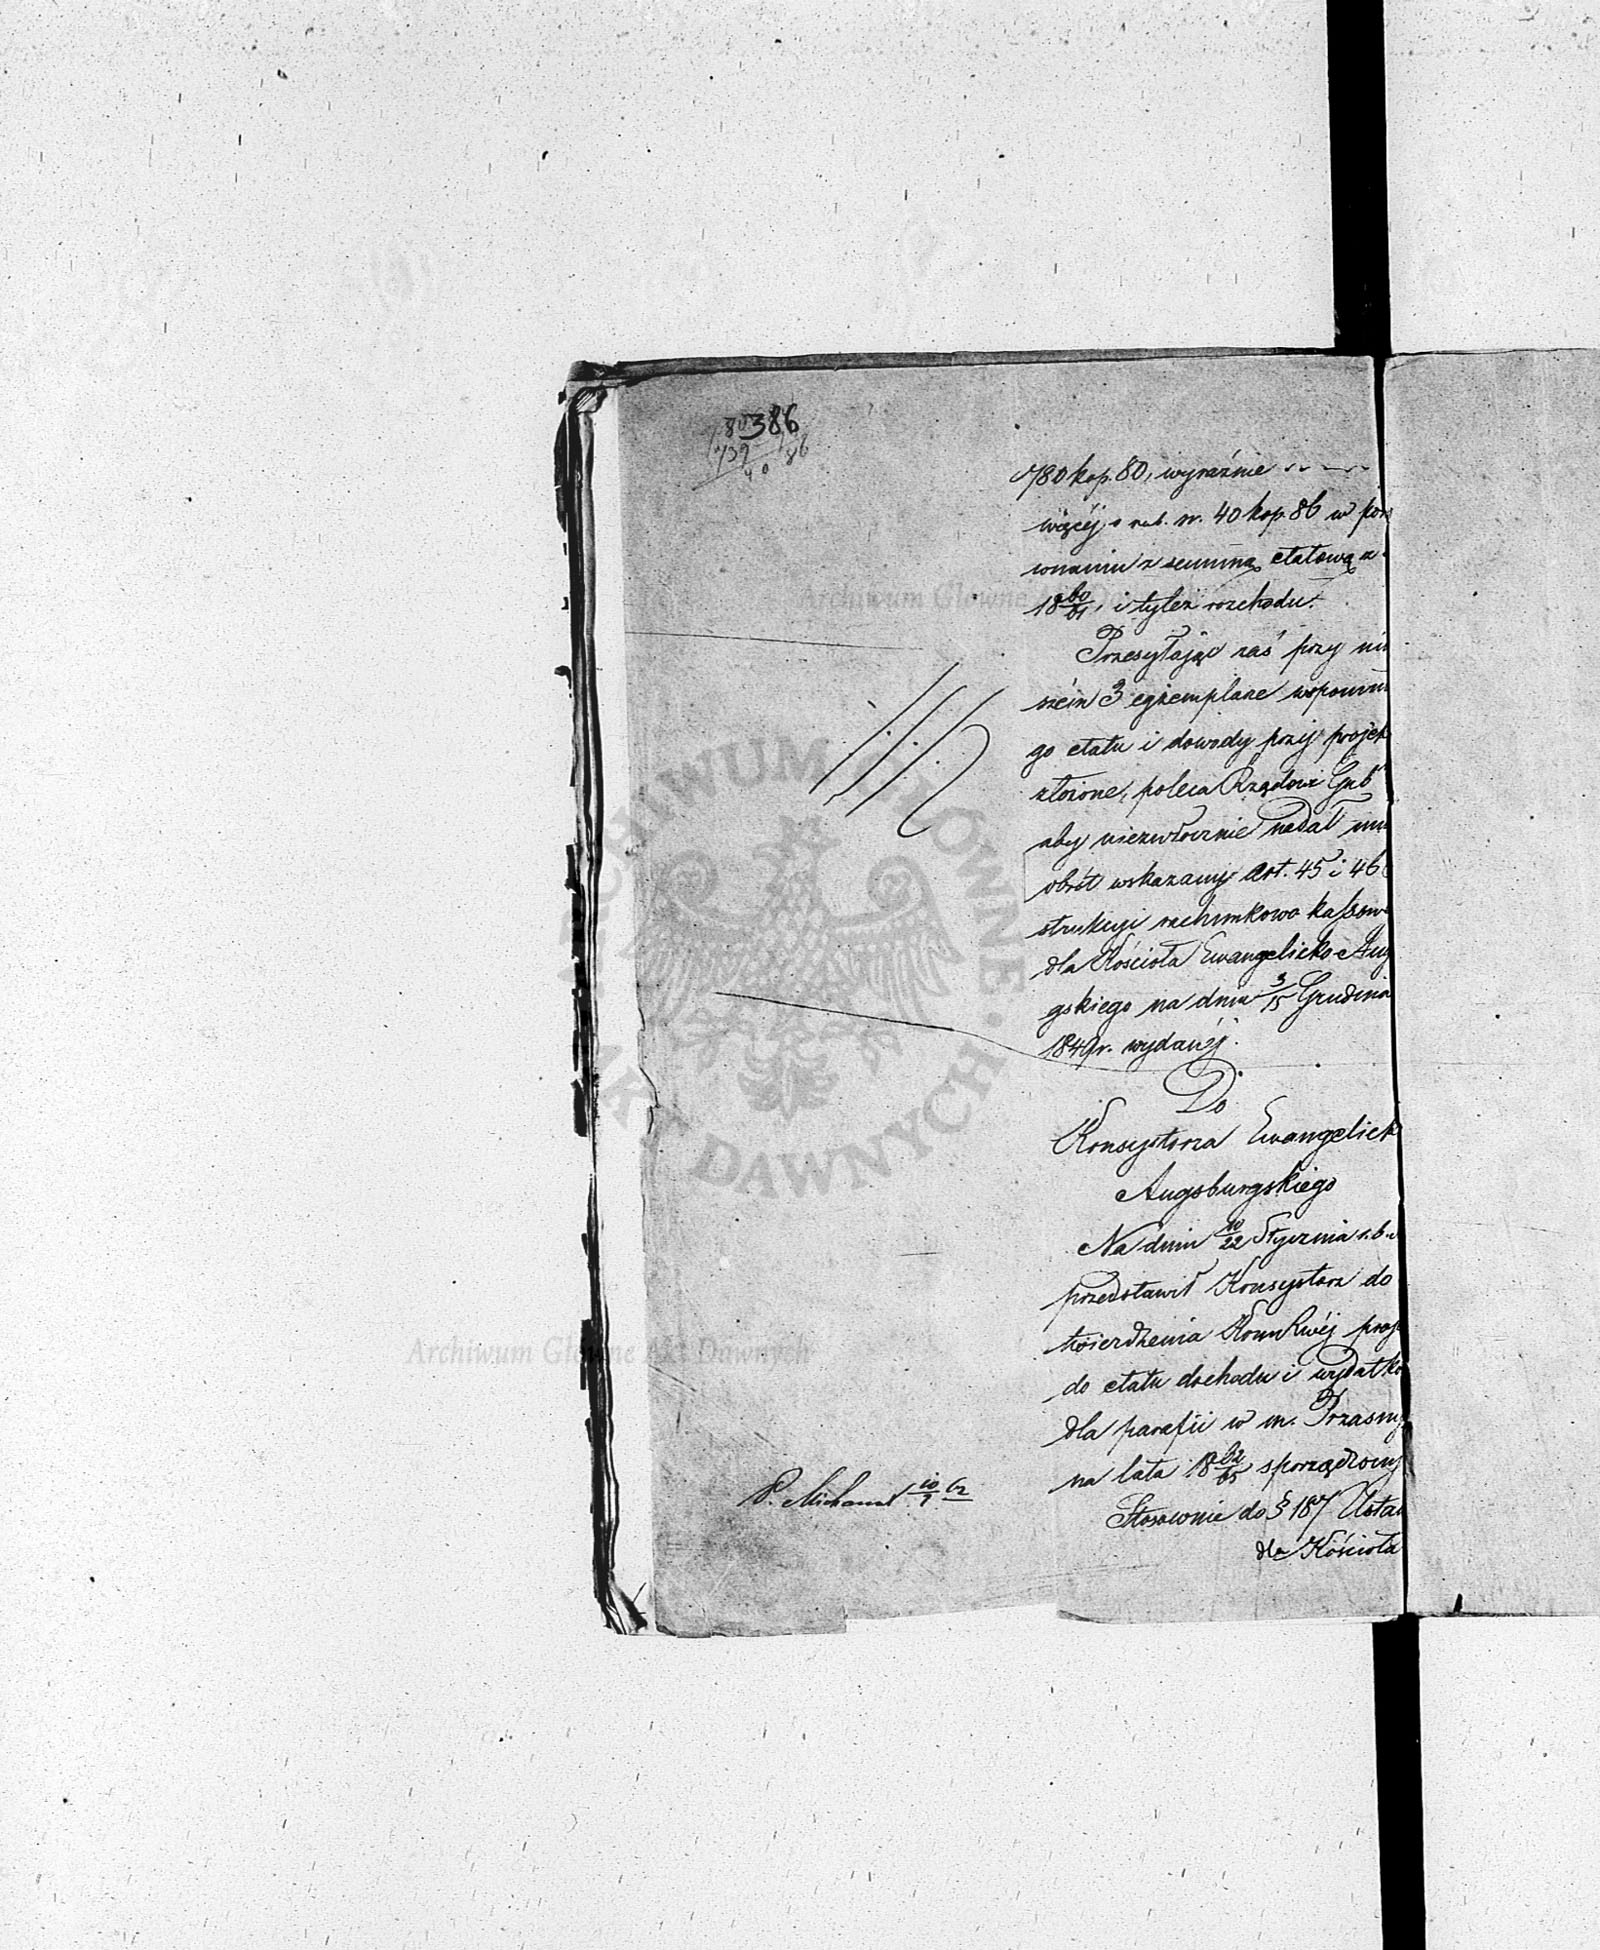 386
780 kop. 80, wyraźnie
więcéj o rub. sr. 40 kop. 86 w poró
wnaniu z summą etatową z
18 60/61, i tyleż rozchodu.
Przesyłając zaś przy ni
szém 3 egzemplarze wspomni
go etatu i dowody przy projek
złożone, poleca Rządowi Gub
aby niezwłocznie nadał im
obrót wskazany Art. 45 i 46
strukcyi rachunkowo kassow
dla Kościoła Ewangelicko-Aug
gskiego na dniu 3/15 Grudnia
1849 r. wydanéj.
Do
Konsystorza Ewangelick
Augsburgskiego
Na dniu 10/22 Stycznia r. b.
przedstawił Konsystorz do
twierdzenia Kom Rwéj proje
do etatu dochodu i wydatkó
dla parafii w m. Przasny
na lata 18 62/65 sporządzony
Stosownie do § 187 Ustaw
dla Kościoła
ARCHIWUM GŁÓWNE AKT DAWNYCH
Archiwum Główne Akt Dawnych
Archiwum Główne Akt Dawnych